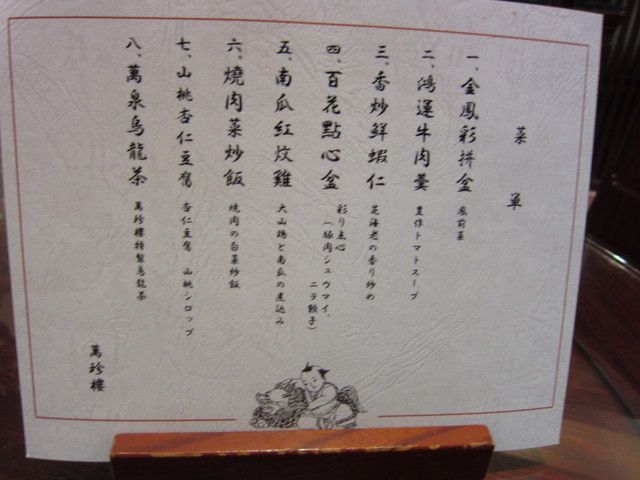 菜単
一、金鳳彩拼盆
風前菜
二、鴻運牛肉羹
豊作トマトスープ
三、香炒鮮蝦仁
芝海老の香り炒め
四、百花點心盆
彩り点心
（豚肉シュウマイ、
ニラ餃子）
五、南瓜紅炆雞
大山鶏と南瓜の煮込み
六、燒肉菜炒飯
焼肉の白菜炒飯
七、山桃杏仁豆腐
杏仁豆腐 山桃シロップ
八、萬泉烏龍茶
萬珍樓特製烏龍茶
萬珍樓